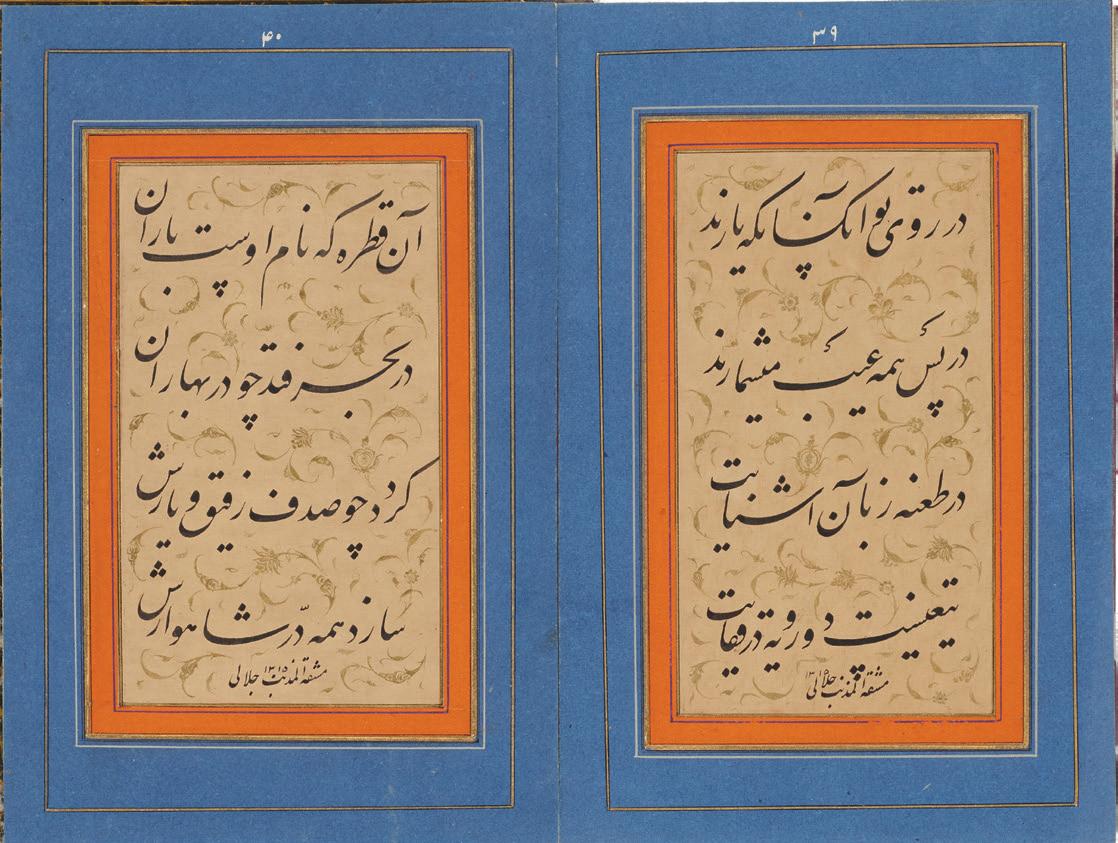 ۳۹
در روی تو آنکسانکه یارند
در پس همه عیب میشمارند
در طعنه زبان آشنایت
تیغیست دو رویه در قفایت
مشقه المذنب جلالی
۴۰
آن قطره که نام اوست باران
در بحر فتد چو در بهاران
گردد چو صدف رفیق و یارش
سازد همه درّ شاهوارش
مشقه المذنب جلالی ۱۳۱۵